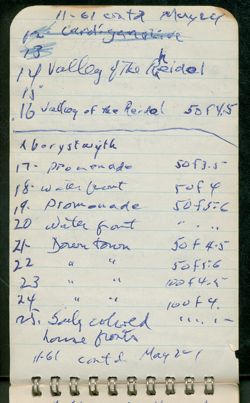 11-61 contd May 24
12 Cardiganshire
13
14 Valley of the Rheidol
15
16 Valley of the Reidol 50f4.5
Aberystwyth
17- Promenade 50f3.5
18- Water front 50f4
19. Promenade 50f5.6
20 Water front " " "
21- Down town 50f4.5
22 " " 50f5.6
23 " " 100f4.5
24 " " 100f4.
25. coloured " " "
house fronts
11-61 contd May 24